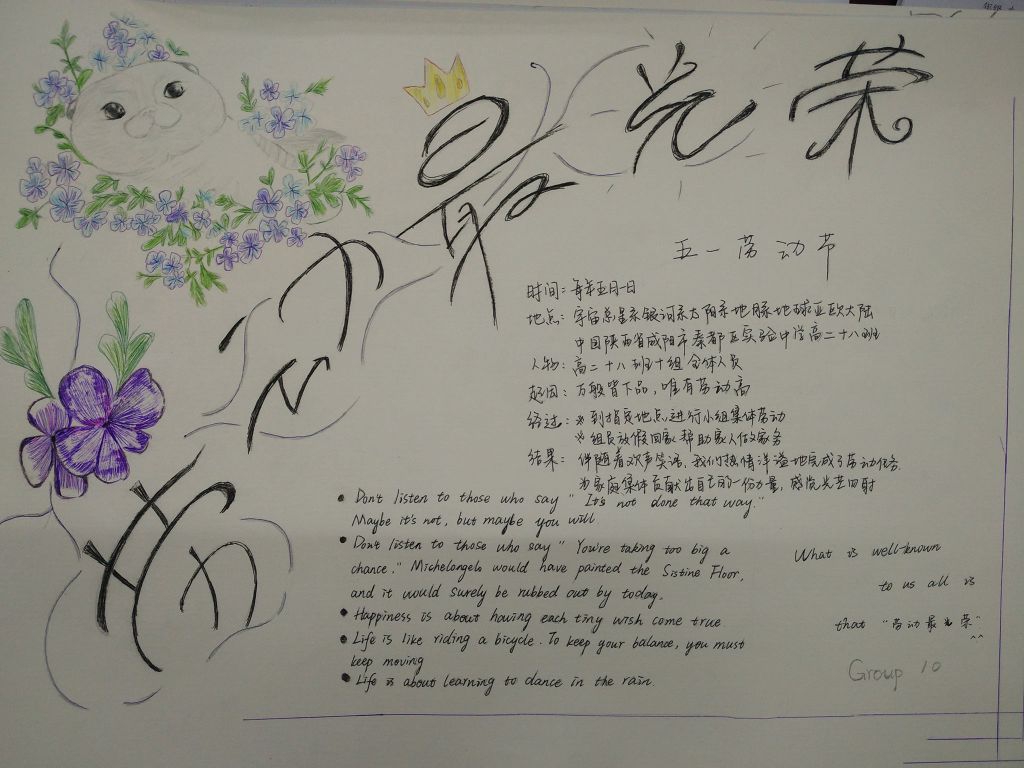 劳动最光荣
五一劳动节
时间：每年五月一日
地点：宇宙总星系银河系太阳系地月系地球亚欧大陆
中国陕西省咸阳市秦都区实验中学高二十八班
人物：高二十八班十组全体人员
起因：万般皆下品，唯有劳动高
经过：※到指定地点进行小组集体劳动
※组员放假回家帮助家人做家务
结果：伴随着欢声笑语，我们热情洋溢地完成了劳动任务.
为家庭集体贡献出自己的一份力量，感觉光芒四射
• Don't listen to those who say " It's not done that way."
Maybe it's not, but maybe you will.
• Don't listen to those who say " You're taking too big a
chance." Michelangelo would have painted the Sistine Floor,
and it would surely be rubbed out by today.
• Happiness is about having each tiny wish come true.
• Life is like riding a bicycle. To keep your balance, you must
keep moving
• Life is about learning to dance in the rain.
What is well-known
to us all is
that "劳动最光荣"
^^
Group 10